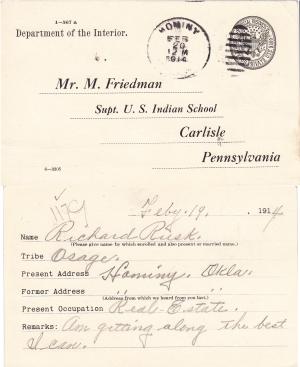 1—567 a
Department of the Interior.
HOMINY
FEB
20
12 M
1914
Mr. M. Friedman
Supt. U. S. Indian School
Carlisle
Pennsylvania
6—3205
Feby. 19, 1914
Name Richard Rusk.
(Please give name by which enrolled and also present or married name.)
Tribe Osage.
Present Address Hominy. Okla.
Former Address " "
(Address from which we heard from you Last.)
Present Occupation Real-Estate.
Remarks: Am getting along the best
I can.